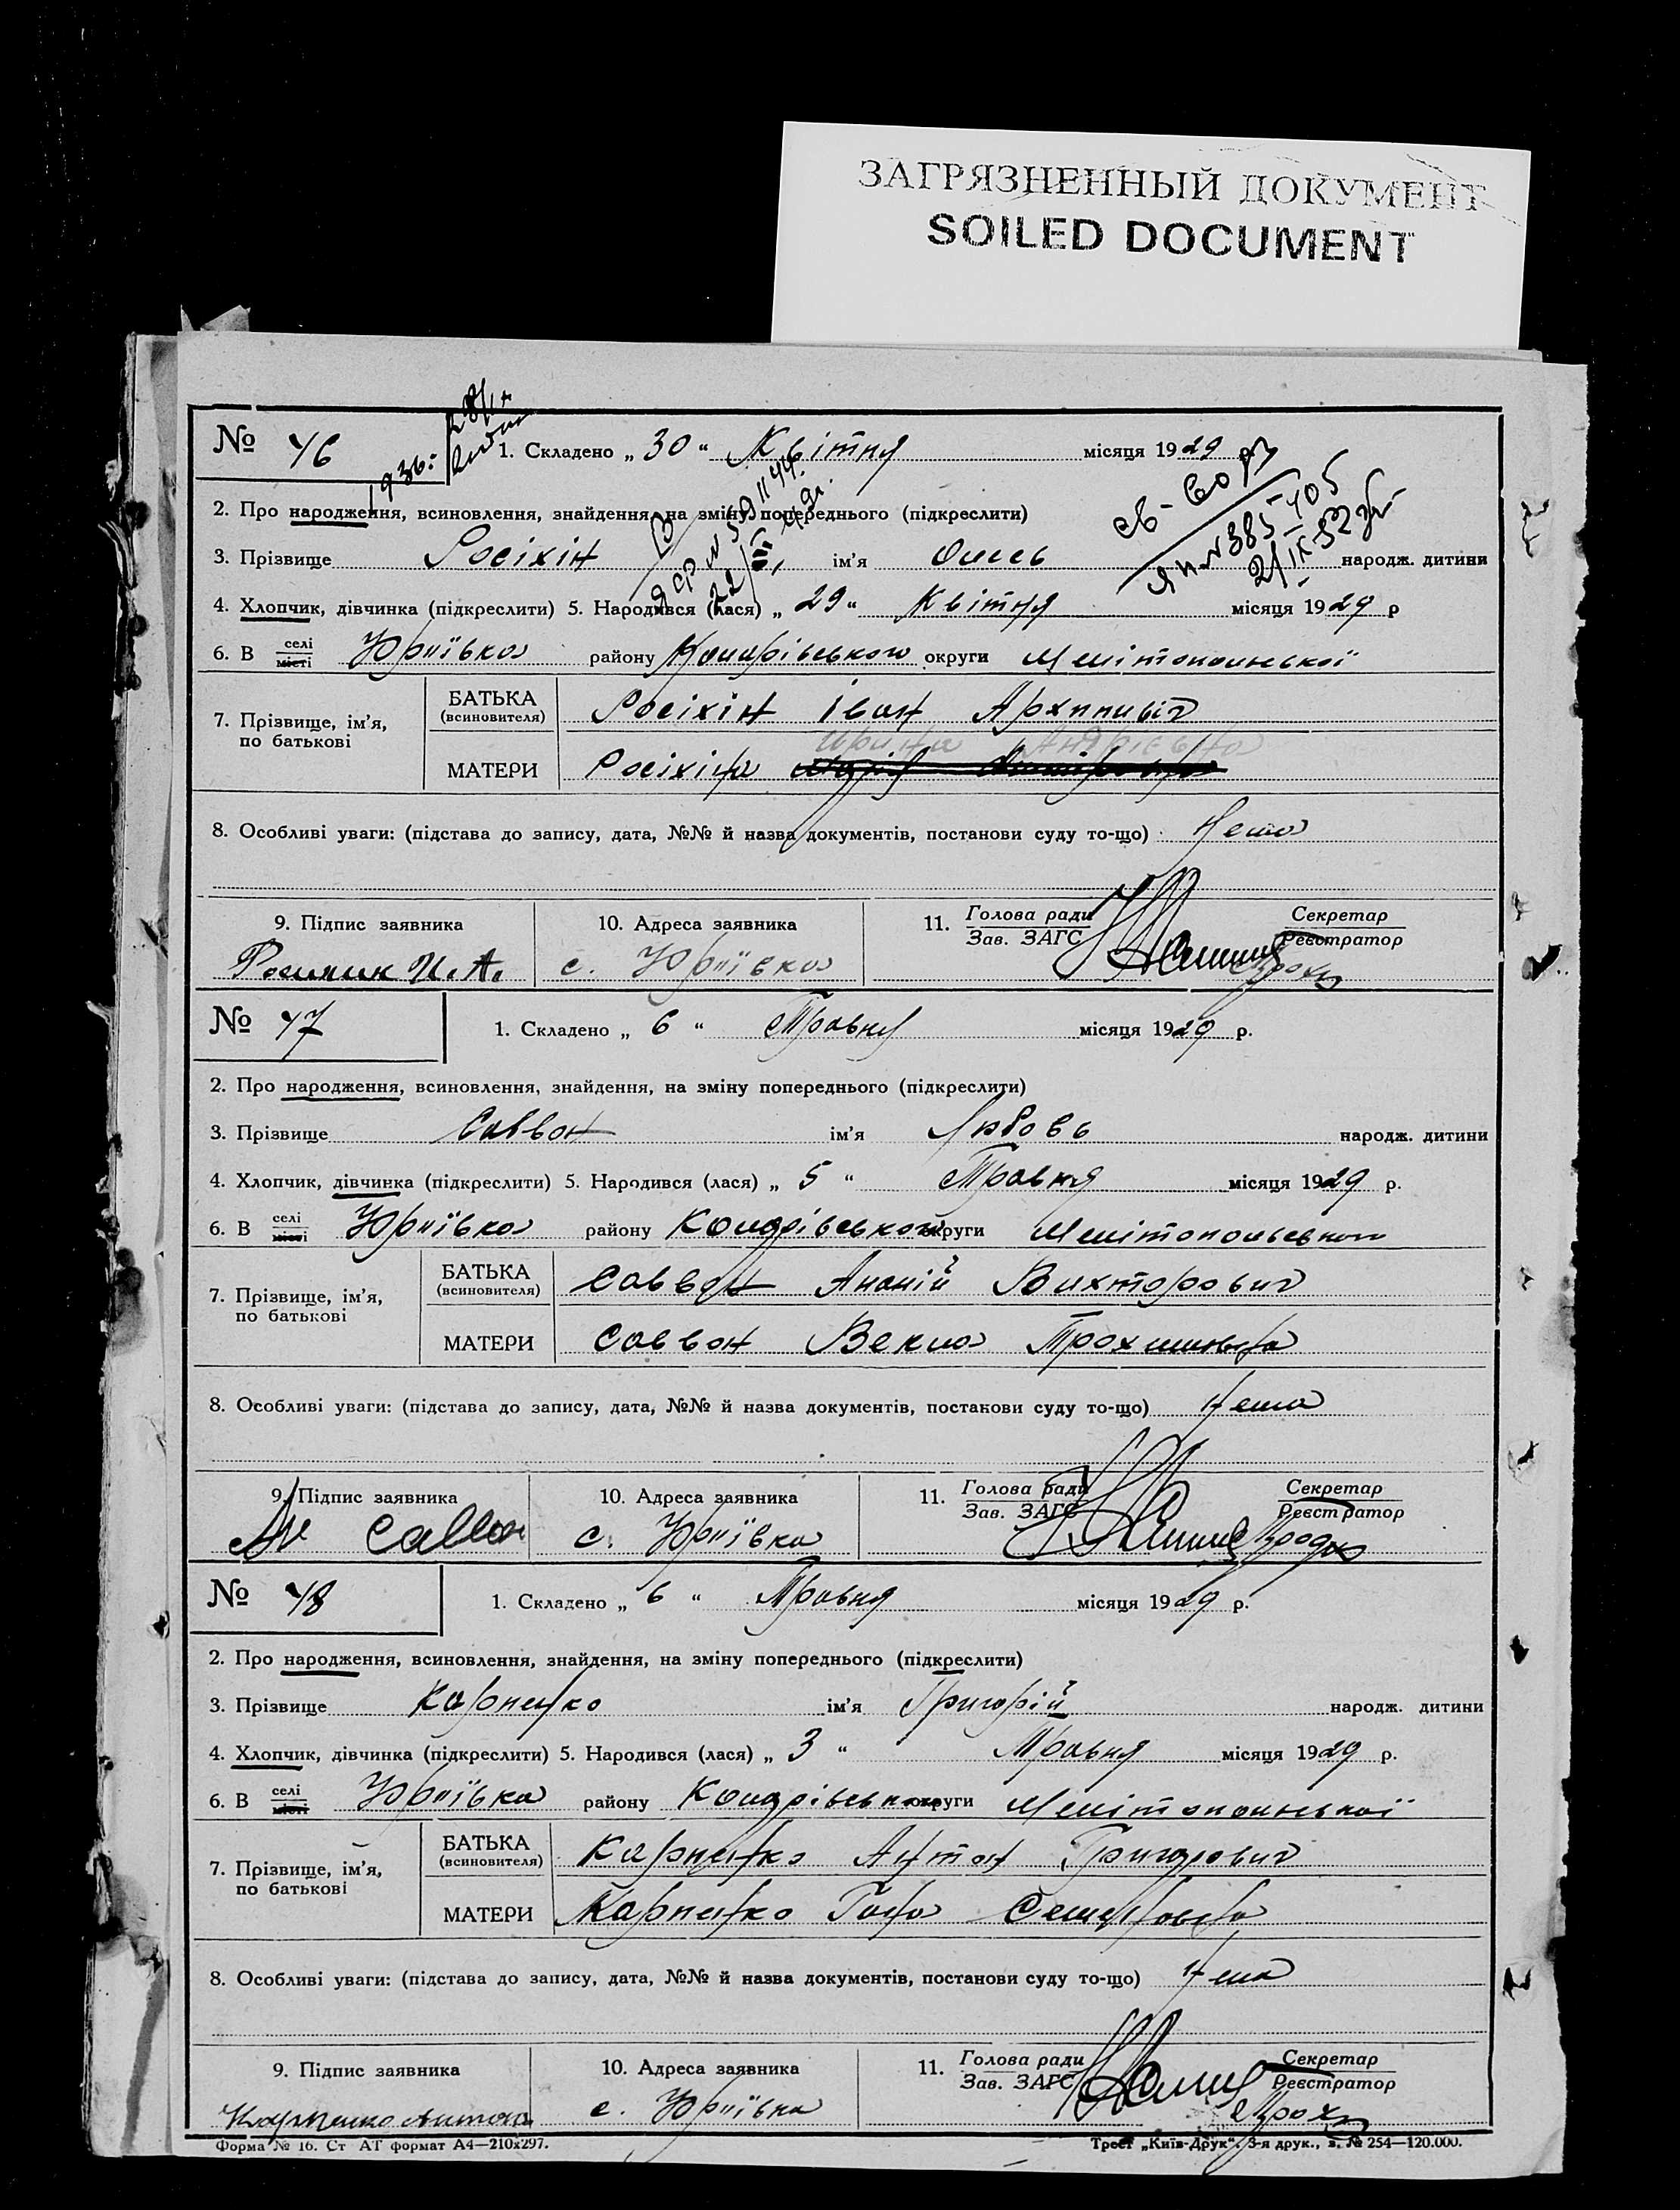 ЗАГРЯЗНЕННЫЙ ДОКУМЕНТ
SOILED DOCUMENT
№ 46
1. Складено „ 30 “ Квітня місяця 1929 р.
2. Про народження, всиновлення, знайдення, на зміну попереднього (підкреслити)
3. Прізвище Росіхін ім'я народж. дитини
4. Хлопчик, дівчинка (підкреслити) 5. Народився (лася) „ 29 “ Квітня місяця 1929 р
6. В селі місті Юріївка району округи Мелітопольської
7. Прізвище, ім'я, по батькові
БАТЬКА (всиновителя) Росіхін Іван Архипович
Ирина Андріевна
МАТЕРИ Росіхіна
8. Особливі уваги: (підстава до запису, дата, №№ й назва документів, постанови суду то-що) Нема
9. Підпис заявника
10. Адреса заявника
11. Голова ради Зав. ЗАГС
Секретар Реєстратор
И. А. с. Юріївка
№ 47
1. Складено „ 6 “ Травня місяця 1929 р.
2. Про народження, всиновлення, знайдення, на зміну попереднього (підкреслити)
3. Прізвище Саввон ім'я Любовь народж. дитини
4. Хлопчик, дівчинка (підкреслити) 5. Народився (лася) „ 5 “ Травня місяця 1929 р.
6. В селі місті Юріївка району округи
7. Прізвище, ім'я, по батькові
БАТЬКА (всиновителя) Саввон Ананій Вихторович
МАТЕРИ Саввон Векла Трохимовна
8. Особливі уваги: (підстава до запису, дата, №№ й назва документів, постанови суду то-що) Нема
9. Підпис заявника
10. Адреса заявника
11. Голова ради Зав. ЗАГС
Секретар Реєстратор
Саввон с. Юріївка
№ 48
1. Складено „ 6 “ Травня місяця 1929 р.
2. Про народження, всиновлення, знайдення, на зміну попереднього (підкреслити)
3. Прізвище Карпенко ім'я Григорій народж. дитини
4. Хлопчик, дівчинка (підкреслити) 5. Народився (лася) „ 3 “ Травня місяця 1929 р.
6. В селі місті Юріївка району округи Мелітопольської
7. Прізвище, ім'я, по батькові
БАТЬКА (всиновителя) Карпенко Антон Григорович
МАТЕРИ Карпенко Гана Семеновна
8. Особливі уваги: (підстава до запису, дата, №№ й назва документів, постанови суду то-що) Нема
9. Підпис заявника
10. Адреса заявника
11. Голова ради Зав. ЗАГС
Секретар Реєстратор
Карпенко Антон с. Юріївка
Форма № 16. Ст АТ формат А4—210х297.
Трест „Київ-Друк“. 3-я друк., з. № 254—120.000.